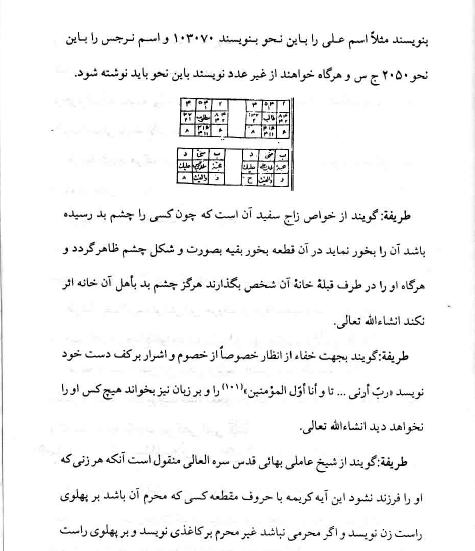 بنویسند مثلاً اسم علی را باین نحو بنویسند ۱۰۳۰۷۰ و اسم نرجس را باین
نحو ۲۰۵۰ ج س و هرگاه خواهند از غیر عدد نویسند باین نحو باید نوشته شود.
طریفة: گویند از خواص زاج سفید آن است که چون کسی را چشم بد رسیده
باشد آن را بخور نماید در آن قطعه بخور بقیه بصورت و شکل چشم ظاهر گردد و
هرگاه او را در طرف قبلهٔ خانهٔ آن شخص بگذارند هرگز چشم بد بأهل آن خانه اثر
نکند انشاءالله تعالی.
طریفة: گویند بجهت خفاء از انظار خصوصاً از خصوم و اشرار بر کف دست خود
نویسد «ربّ أرنی ... تا و أنا أوّل المؤمنین»(۱۰۱) را و بر زبان نیز بخواند هیچ کس او را
نخواهد دید انشاءالله تعالی.
طریفة: گویند از شیخ عاملی بهائی قدس سره العالی منقول است آنکه هر زنی که
او را فرزند نشود این آیه کریمه با حروف مقطعه کسی که محرم آن باشد بر پهلوی
راست زن نویسد و اگر محرمی نباشد غیر محرم بر کاغذی نویسد و بر پهلوی راست